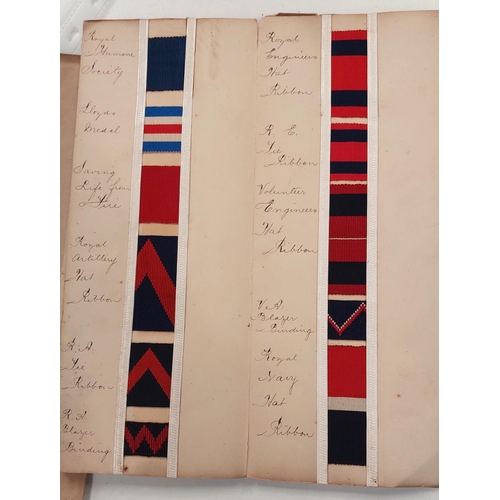 Royal
Humane
Society
Lloyds
Medal
Saving
Life from
Fire
Royal
Artillery
Hat
Ribbon
R. A.
Tie
Ribbon
R. A.
Blazer
Binding
Royal
Engineers
Hat
Ribbon
R. E.
Tie
Ribbon
Volunteer
Engineers
Hat
Ribbon
V. A.
Blazer
Binding
Royal
Navy
Hat
Ribbon